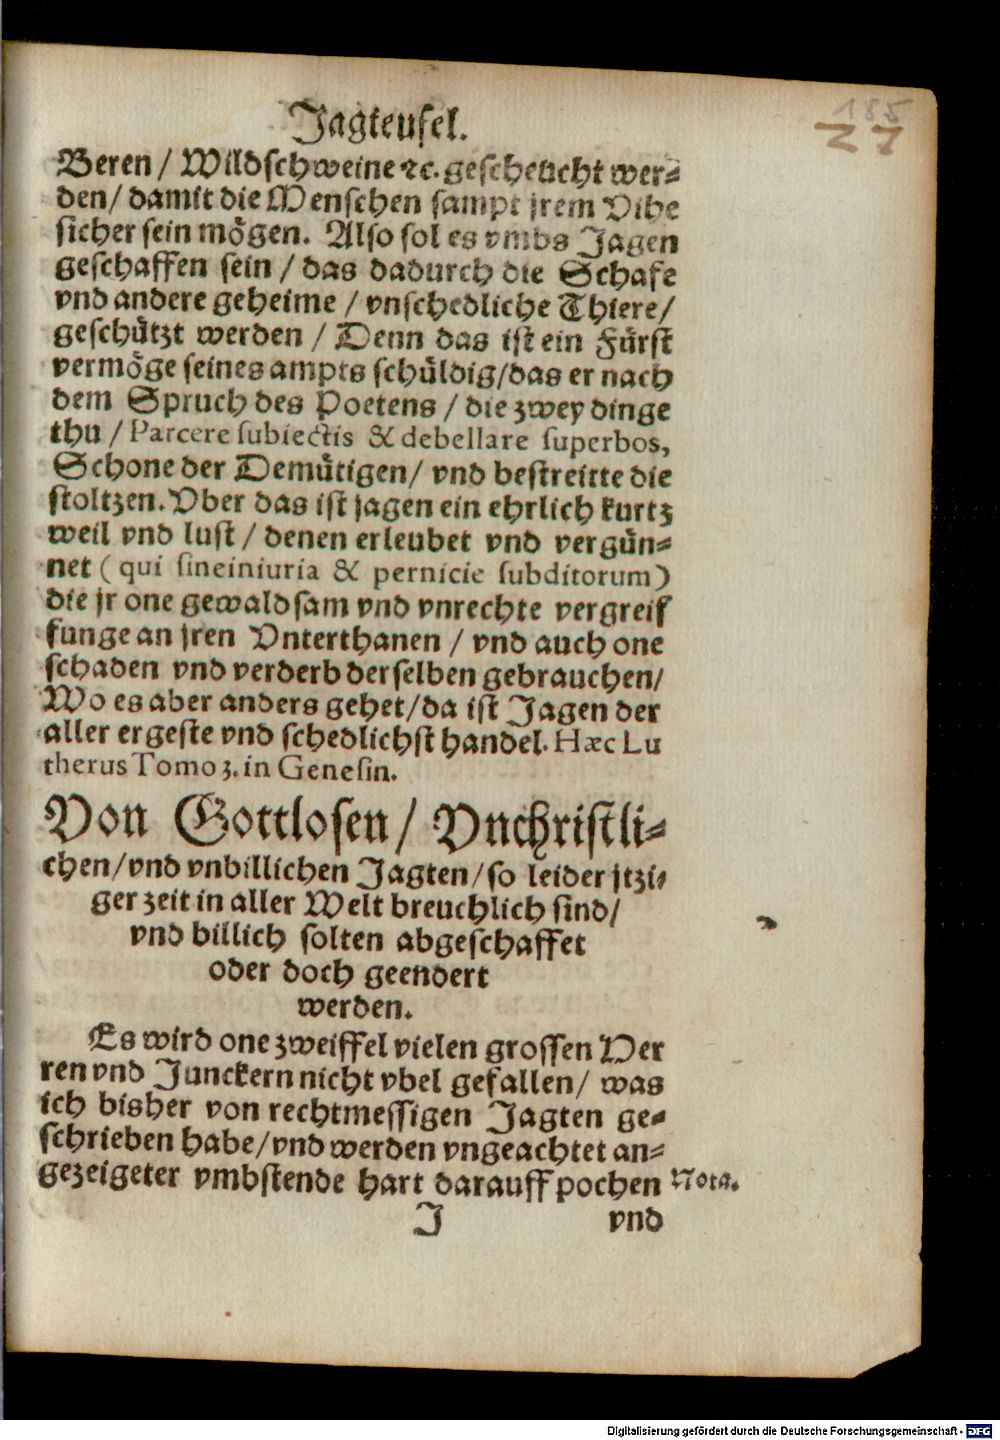 185
27
Jagteufel.
Beren / Wildschweine ꝛc. gescheucht wer⸗
den / damit die Menschen sampt jrem Vihe
sicher sein mögen. Also sol es vmbs Jagen
geschaffen sein / das dadurch die Schafe
vnd andere geheime / vnschedliche Thiere /
geschützt werden / Denn das ist ein Fürst
vermöge seines ampts schüldig / das er nach
dem Spruch des Poetens / die zwey dinge
thu / Parcere subiectis & debellare superbos,
Schone der Demütigen / vnd bestreitte die
stoltzen. Vber das ist jagen ein ehrlich kurtz
weil vnd lust / denen erleubet vnd vergün⸗
net ( qui sineiniuria & pernicie subditorum )
die jr one gewaldsam vnd vnrechte vergreif
funge an jren Vnterthanen / vnd auch one
schaden vnd verderb derselben gebrauchen /
Wo es aber anders gehet / da ist Jagen der
aller ergeste vnd schedlichst handel. Hæc Lu
therus Tomo 3. in Genesin.
Von Gottlosen / Vnchristli⸗
chen / vnd vnbillichen Jagten / so leider jtzi⸗
ger zeit in aller Welt breuchlich sind /
vnd billich solten abgeschaffet
oder doch geendert
werden.
Es wird one zweiffel vielen grossen Her
ren vnd Junckern nicht vbel gefallen / was
ich bisher von rechtmessigen Jagten ge⸗
schrieben habe / vnd werden vngeachtet an⸗
gezeigeter vmbstende hart darauff pochen Nota.
J vnd
Digitalisierung gefördert durch die Deutsche Forschungsgemeinschaft - DFG